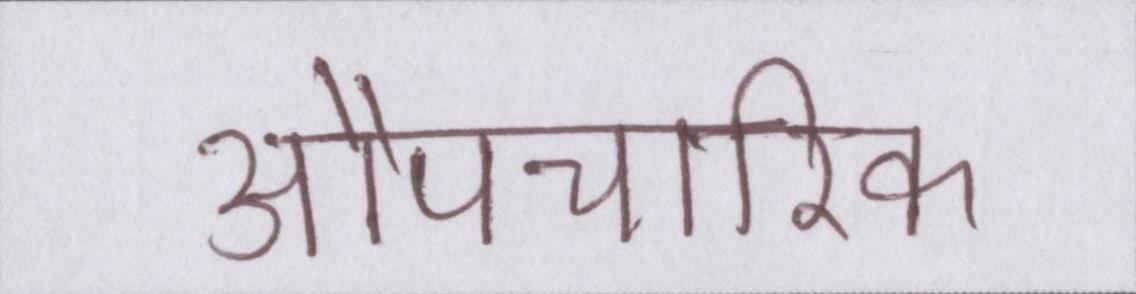 औपचारिक